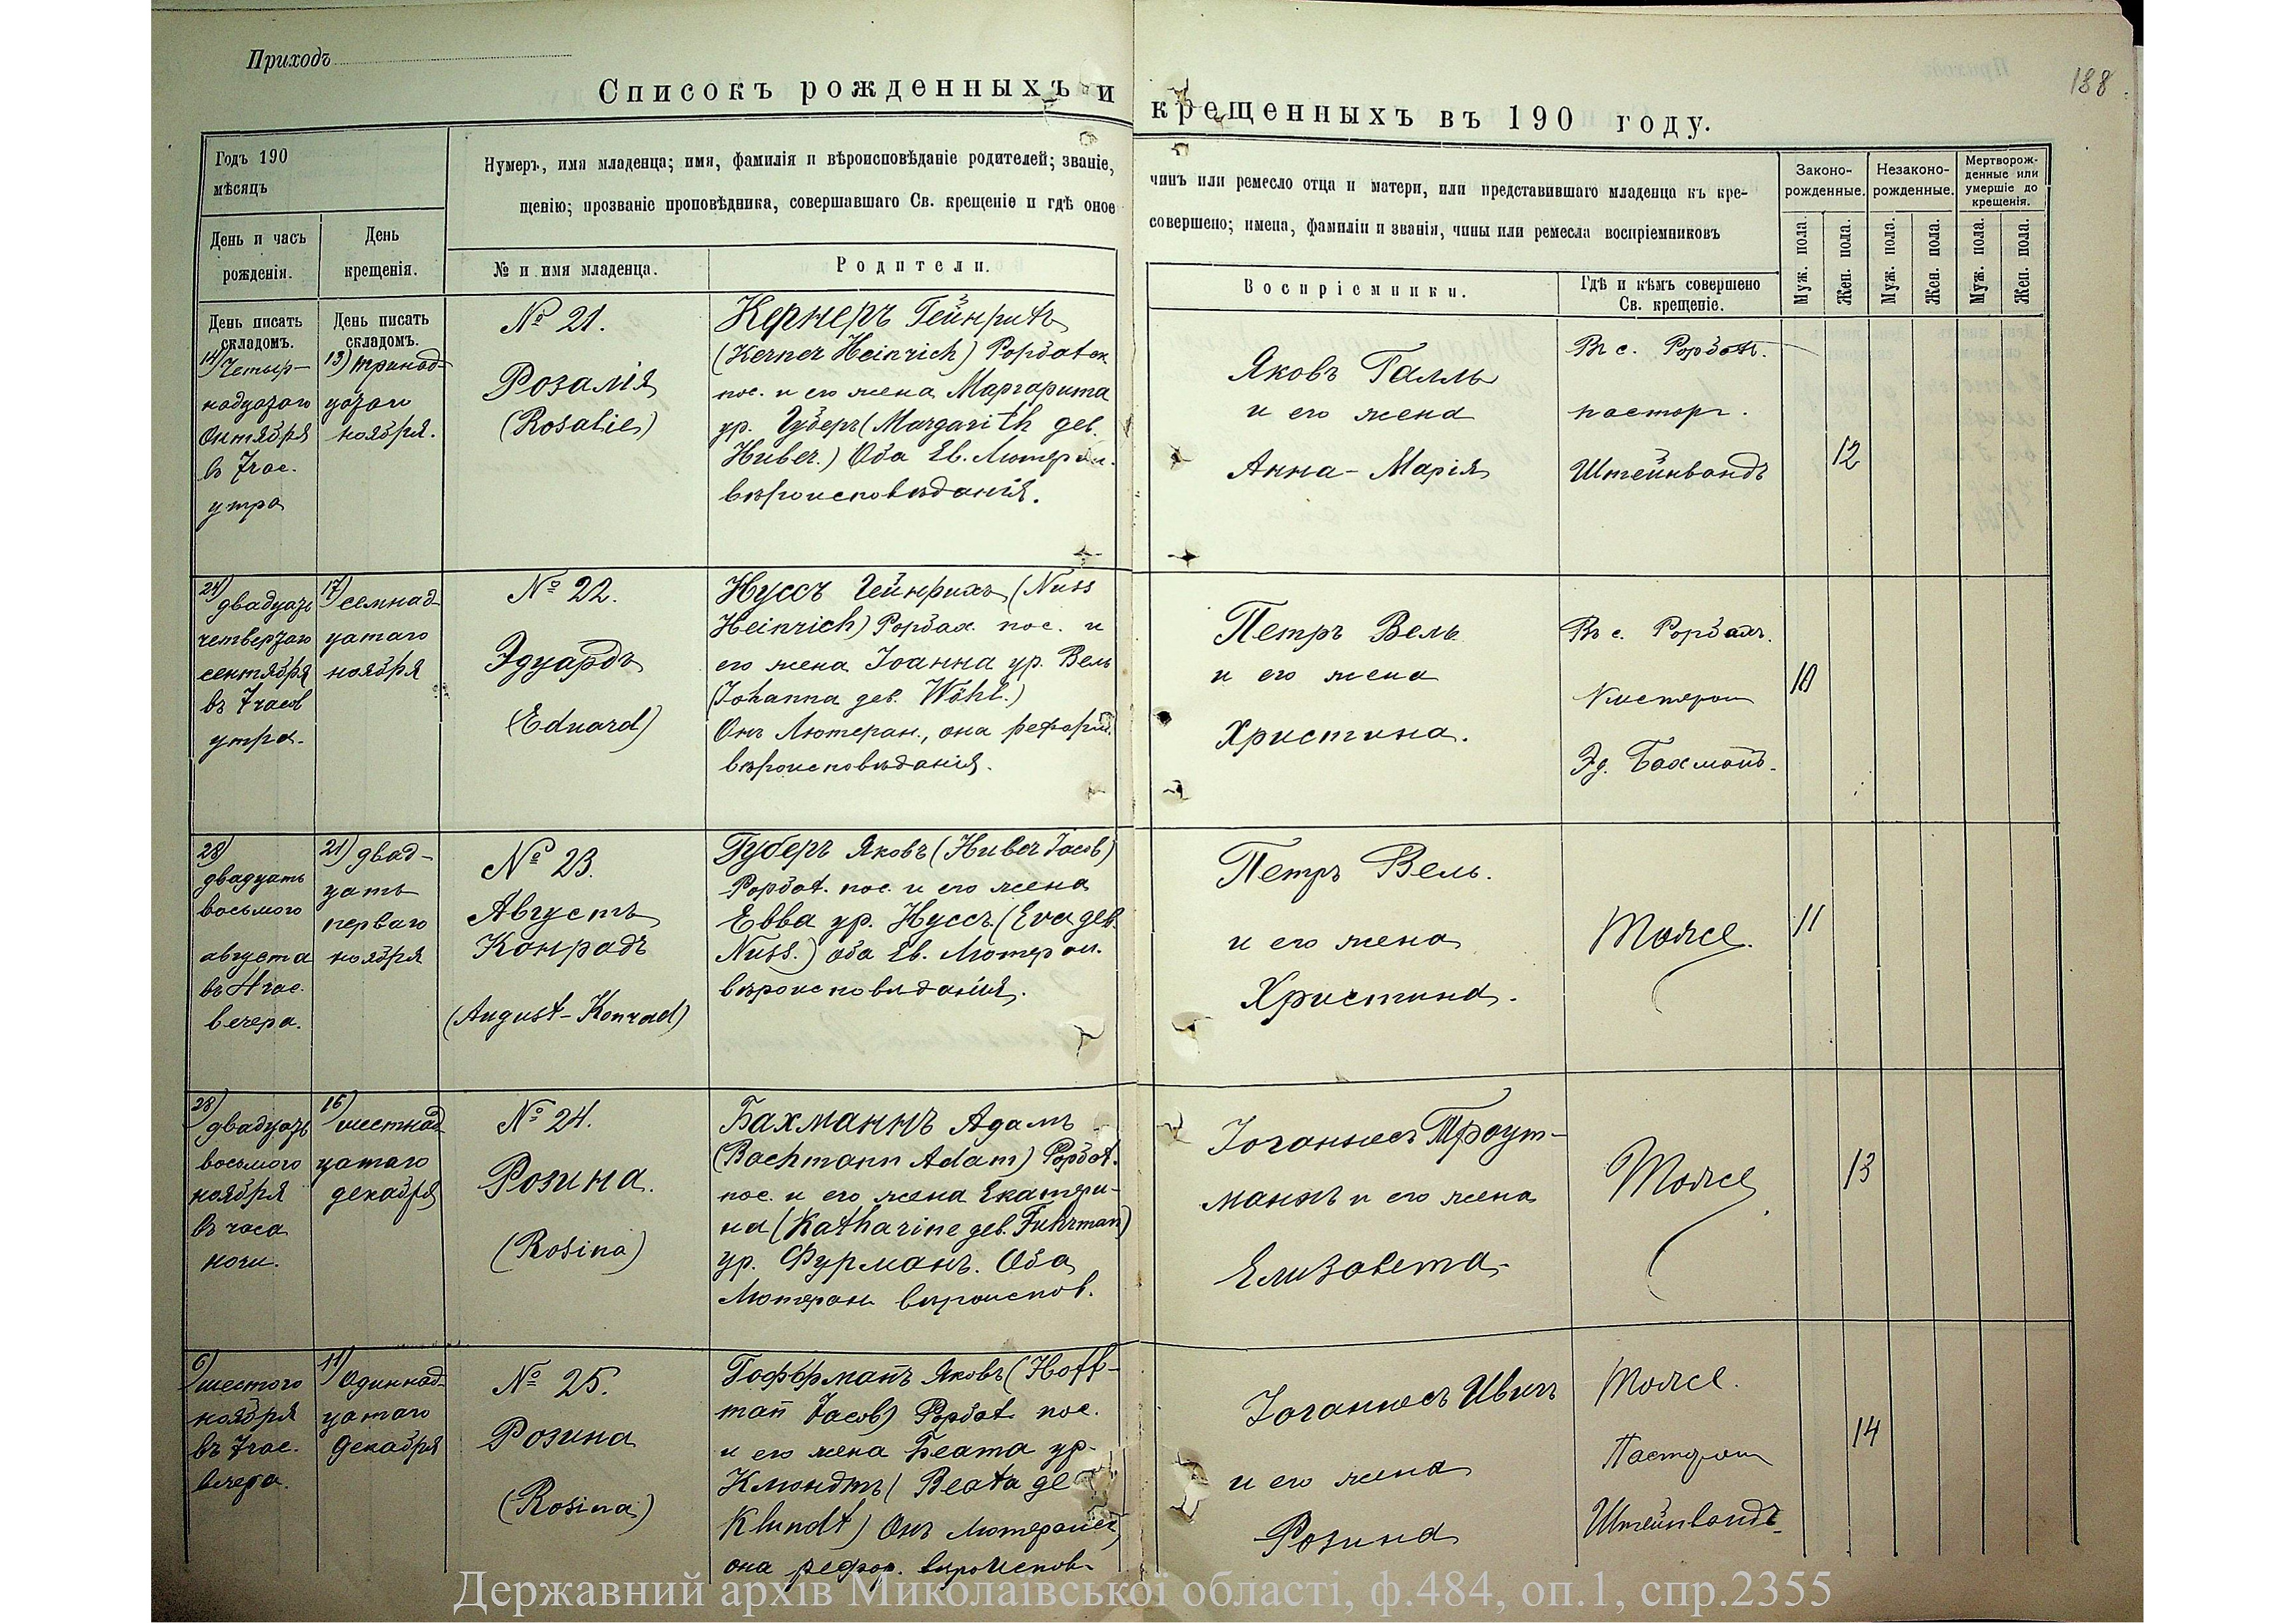 Приходъ
188
Списокъ рожденныхъ и крещенныхъ въ 190 году.
Годъ 190
мѣсяцъ
День и часъ
рожденія.
День
крещенія.
Нумеръ, имя младенца; имя, фамилія и вѣроисповѣданіе родителей; званіе,
щенію; прозваніе проповѣдника, совершавшаго Св. крещеніе и гдѣ оное
№ и имя младенца.
Родители.
чинъ или ремесло отца и матери, или представившаго младенца къ кре-
совершено; имена, фамиліи и званія, чины или ремесла воспріемниковъ
Воспріемники.
Гдѣ и кѣмъ совершено
Св. крещеніе.
Законо-
рожденные.
Незаконо-
рожденные.
Мертворож-
денные или
умершіе до
крещенія.
Муж. пола.
Жен. пола.
Муж. пола.
Жен. пола.
Муж. пола.
Жен. пола.
День писать
складомъ.
14) Четыр-
надцатаго
Октября
въ 7 час.
утра
День писать
складомъ.
13) тринад-
цатаго
ноября.
№ 21.
Розалія
(Rosalie)
Кернеръ Гейнрихъ
(Kerner Heinrich) Рорбахск
пос. и его жена Маргарита
ур. Губеръ (Margarith geb.
Huber.) Оба Ев. Лютеран.
вѣроисповѣданія.
Яковъ Галль
и его жена
Анна-Марія
Въ с. Рорбахѣ.
пасторъ.
Штейнвандъ
12
24) двадцать
четвертаго
сентября
въ 7 часов
утра.
17) семнад-
цатаго
ноября
№ 22.
Эдуардъ
(Eduard)
Нуссъ Гейнрихъ (Nuss
Heinrich) Рорбах. пос. и
его жена Іоанна ур. Вель
(Johanna geb. Wöhl.)
Онъ Лютеран., она реформ.
вѣроисповѣданія.
Петръ Вель
и его жена
Христина.
Въ с. Рорбахѣ.
Кистеромъ
Эд. Бахманъ.
10
28)
двадцать
восьмого
августа
въ 4 час.
вечера.
21) двад-
цать
перваго
ноября
№ 23.
Августъ
Конрадъ
(August-Konrad)
Губеръ Яковъ (Huber Jacob)
Рорбах. пос. и его жена
Евва ур. Нуссъ. (Eva geb.
Nuss.) оба Ев. Лютеран.
вѣроисповѣданія.
Петръ Вель.
и его жена
Христина.
Тоже.
11
28)
двадцать
восьмого
ноября
въ часа
ночи.
16)
шестнад
цатаго
декабря
№ 24.
Розина.
(Rosina)
Бахманнъ Адамъ
(Bachmann Adam) Рорбах.
пос. и его жена Екатери-
на (Katharine geb. Fuhrman)
ур. Фурманъ. Оба
Лютеран вѣроиспов.
Іоганнесъ Траут-
маннъ и его жена
Елизавета.
Тоже
13
6)
шестого
ноября
въ 7 час.
вечера.
11)
Одиннад-
цатаго
декабря
№ 25.
Розина
(Rosina)
Гоффманъ Яковъ (Hoff-
mañ Jacob) Рорбах. пос.
и его жена Беата ур.
Клюндтъ (Beata ge
Klundt) Онъ Лютеранск
она рефор. вѣроиспов.
Іоганнесъ Ивигъ
и его жена
Розина
Тоже.
Пасторомъ
Штейнвандъ.
14
Державний архів Миколаївської області, ф.484, оп.1, спр.2355